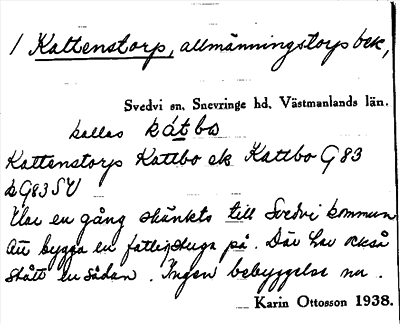 1 Kattenstorp, allmänningstorp bek,
Svedvi sn, Snevringe hd, Västmanlands län.
kallas kåtbo
Kattenstorp Kattbo ek Kattbo G83
bG83SV
Har en gång skänkts till Svedvi kommun
att bygga en fattigstuga på. Där har också
stått en sådan. Ingen bebyggelse nu.
Karin Ottosson 1938.